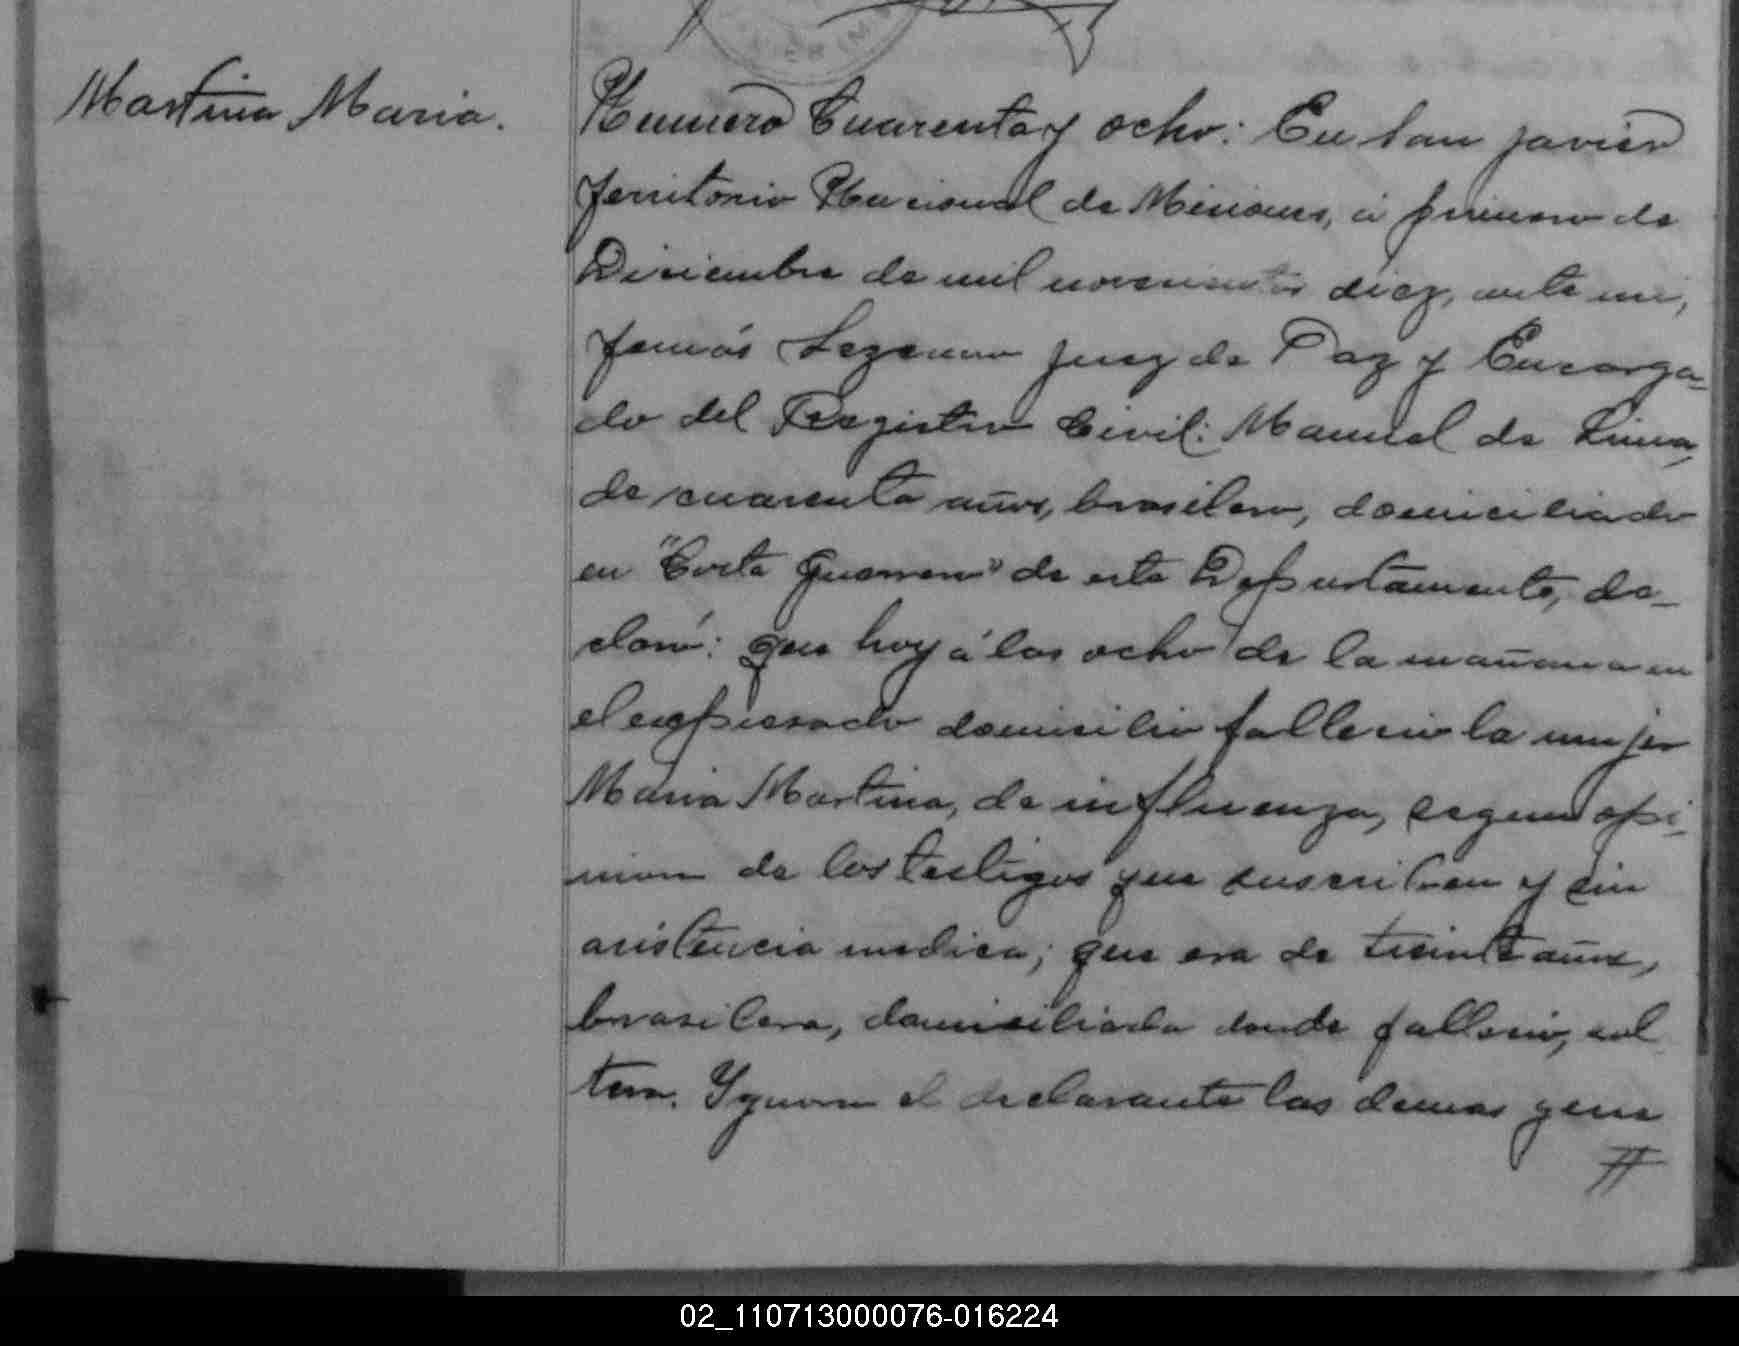 Martina Maria.
Numero Cuarenta y ocho: En San Javier
Territorio Nacional de Misiones, á primero de
Diciembre de mil novecientos diez, ante mi,
Tomás Lezcano Juez de Paz y Encarga-
do del Registro Civil: Manuel de Lima,
de cuarenta años, brasilero, domiciliado
en "Corta Guerrero" de este Departamento, de-
claró: que hoy á las ocho de la mañana en
el expresado domicilio falleció la mujer
Maria Martina, de influenza, segun opi-
nion de los testigos que suscriben y sin
asistencia medica; que era de treinta años,
brasilera, domiciliada donde falleció, sol
tera. Ygnora el declarante las demas gene
#
02_110713000076-016224